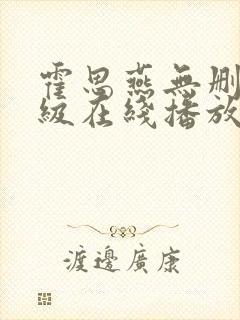 霍思燕無刪
級在綫播放
渡邊廣康